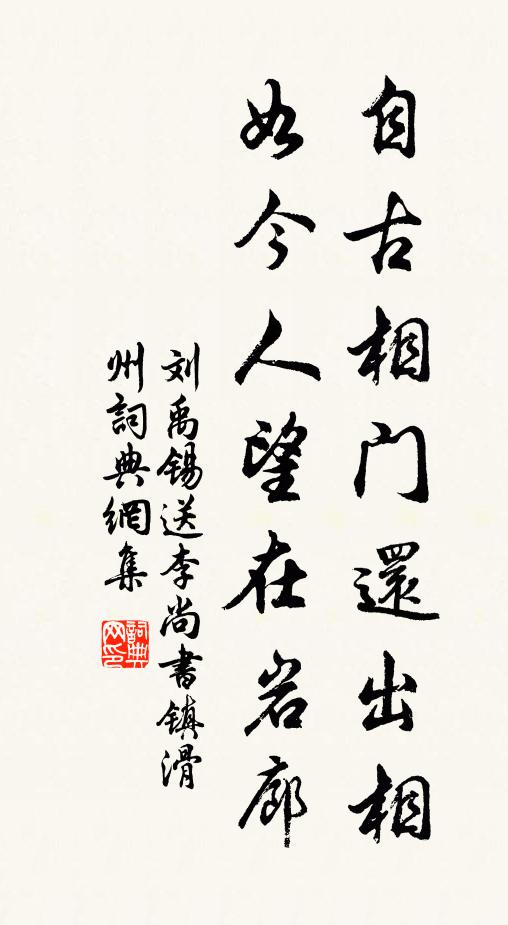 自古相门還出相
如今人望在岩廊
刘禹錫送李尚書镇滑
州詞典網集
詞典网印